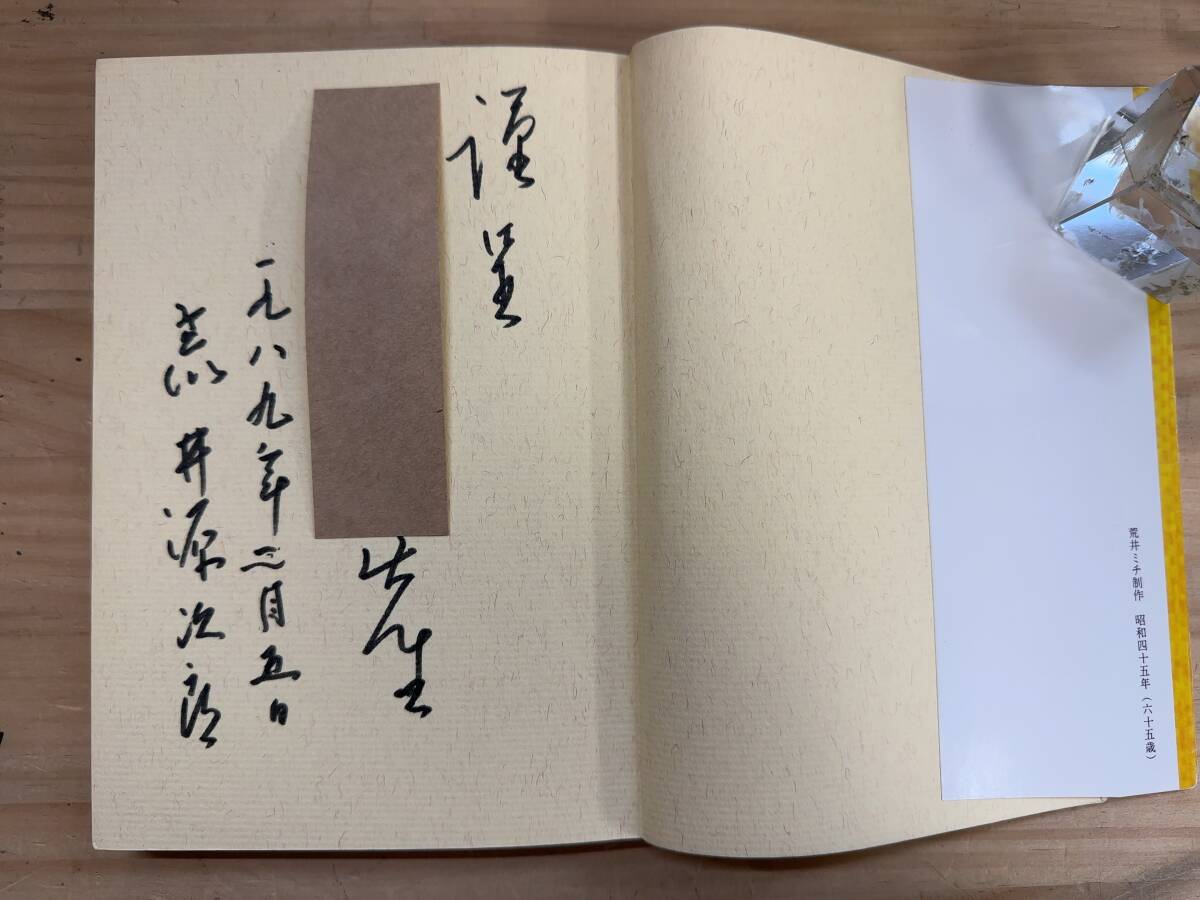 荒井ミチ制作 昭和四十五年(六十五歳)
謹呈
先生
一九八九年三月五日
荒井源次郎